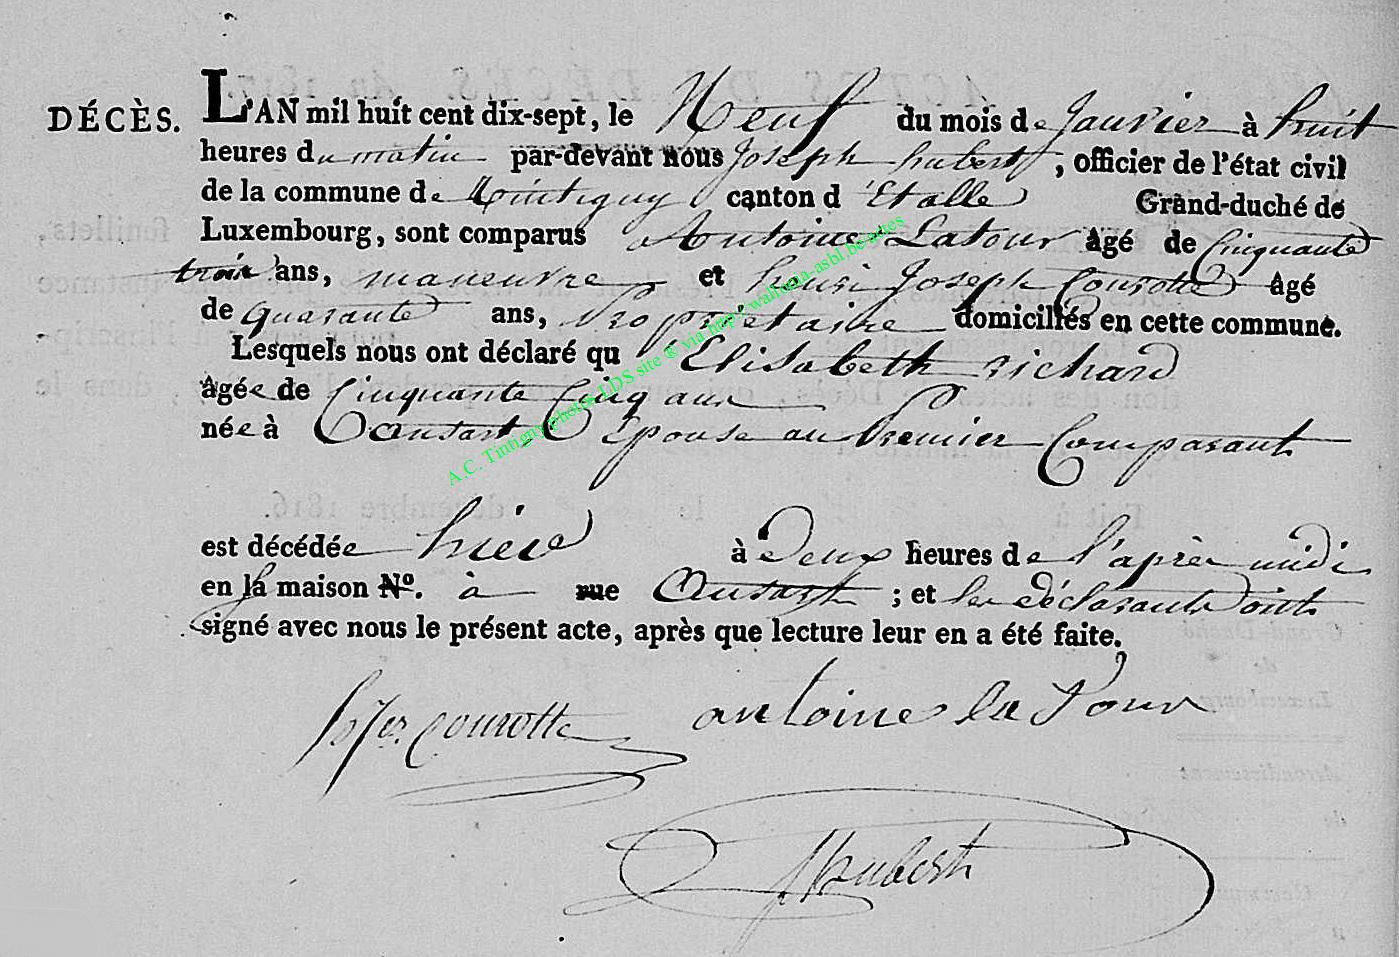 DÉCÈS. L'AN mil huit cent dix-sept, le Neuf du mois de Janvier à huit
heures du matin par-devant nous Joseph hubert, officier de l'état civil
de la commune de Tintigny canton d'Etalle Grand-duché de
Luxembourg, sont comparus Antoine Latour âgé de Cinquante
trois ans, maneuvre et henri Joseph Courotte âgé
de quarante ans, Propriétaire domiciliés en cette commune.
Lesquels nous ont déclaré qu'Elisabeth richard
âgée de Cinquante Cinq ans
née à Dansart Epouse au Premier Comparant
est décédée hier à deux heures de l'après midi
en la maison No. à rue Ansart ; et les déclarants ont
signé avec nous le présent acte, après que lecture leur en a été faite.
Courotte antoine la Tour
Hubert
A.C. Tintigny photos LDS site ® via http://wallonia-asbl.be/actes